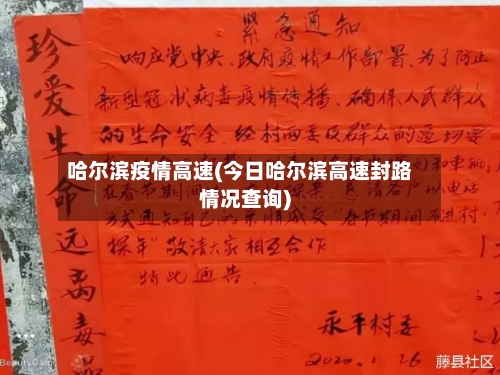 珍爱生命远离毒品
紧急通知
响应党中央、政府疫情工作部署,为了防止
新型冠状病毒疫情传播,确保人民群众
的生命安全,经村两委及群众的迫切要
哈尔滨疫情高速(今日哈尔滨高速封路
情况查询)
和车辆
在春节期间
请各户以电话
方式通知自己的亲朋戚友"春节期间不进村
探年"敬请大家相互合作.
特此通告.
永平村委
2020.1.26
BeautyCam
藤县社区